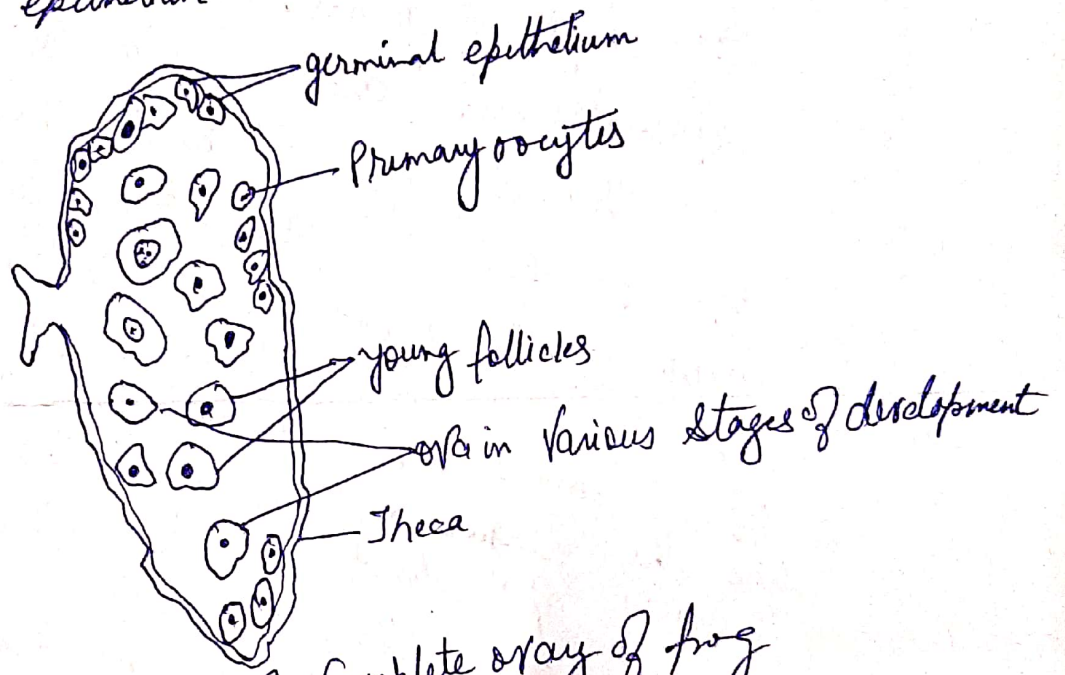 germinal epithelium
Primary oocytes
young follicles
ova in various stages of development
Theca
ovary of frog